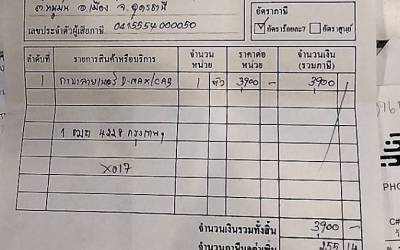 ต.หมูม่น อ.เมือง จ.อุดรธานี
เลขประจำตัวผู้เสียภาษี 0415554000050
อัตราภาษี
อัตราร้อยละ7 อัตราศูนย์
ลำดับที่ รายการสินค้าหรือบริการ จำนวนหน่วย ราคาต่อหน่วย จำนวนเงิน (รวมภาษี)
1 D-MAX/CAB 1 ตัว 3,900 - 3,900
1 4228 กรุงเทพฯ
X017
จำนวนเงินรวมทั้งสิ้น 3,900 -
จำนวนภาษีมูลค่าเพิ่ม 255 14
PHO
C#